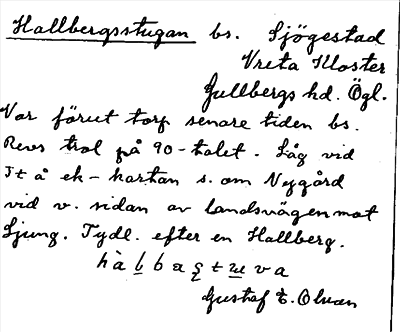 Hallbergsstugan bs. Sjögestad
Vreta Kloster
Gullbergs hd. Ögl.
Var förut torp senare tiden bs.
Revs trol på 90-talet. Låg vid
It å ek-kartan s. om Nygård
vid v. sidan av landsvägen mot
Ljung. Tydl. efter en Hallberg.
hà b b a s t u v a
Gustaf E. Olvan